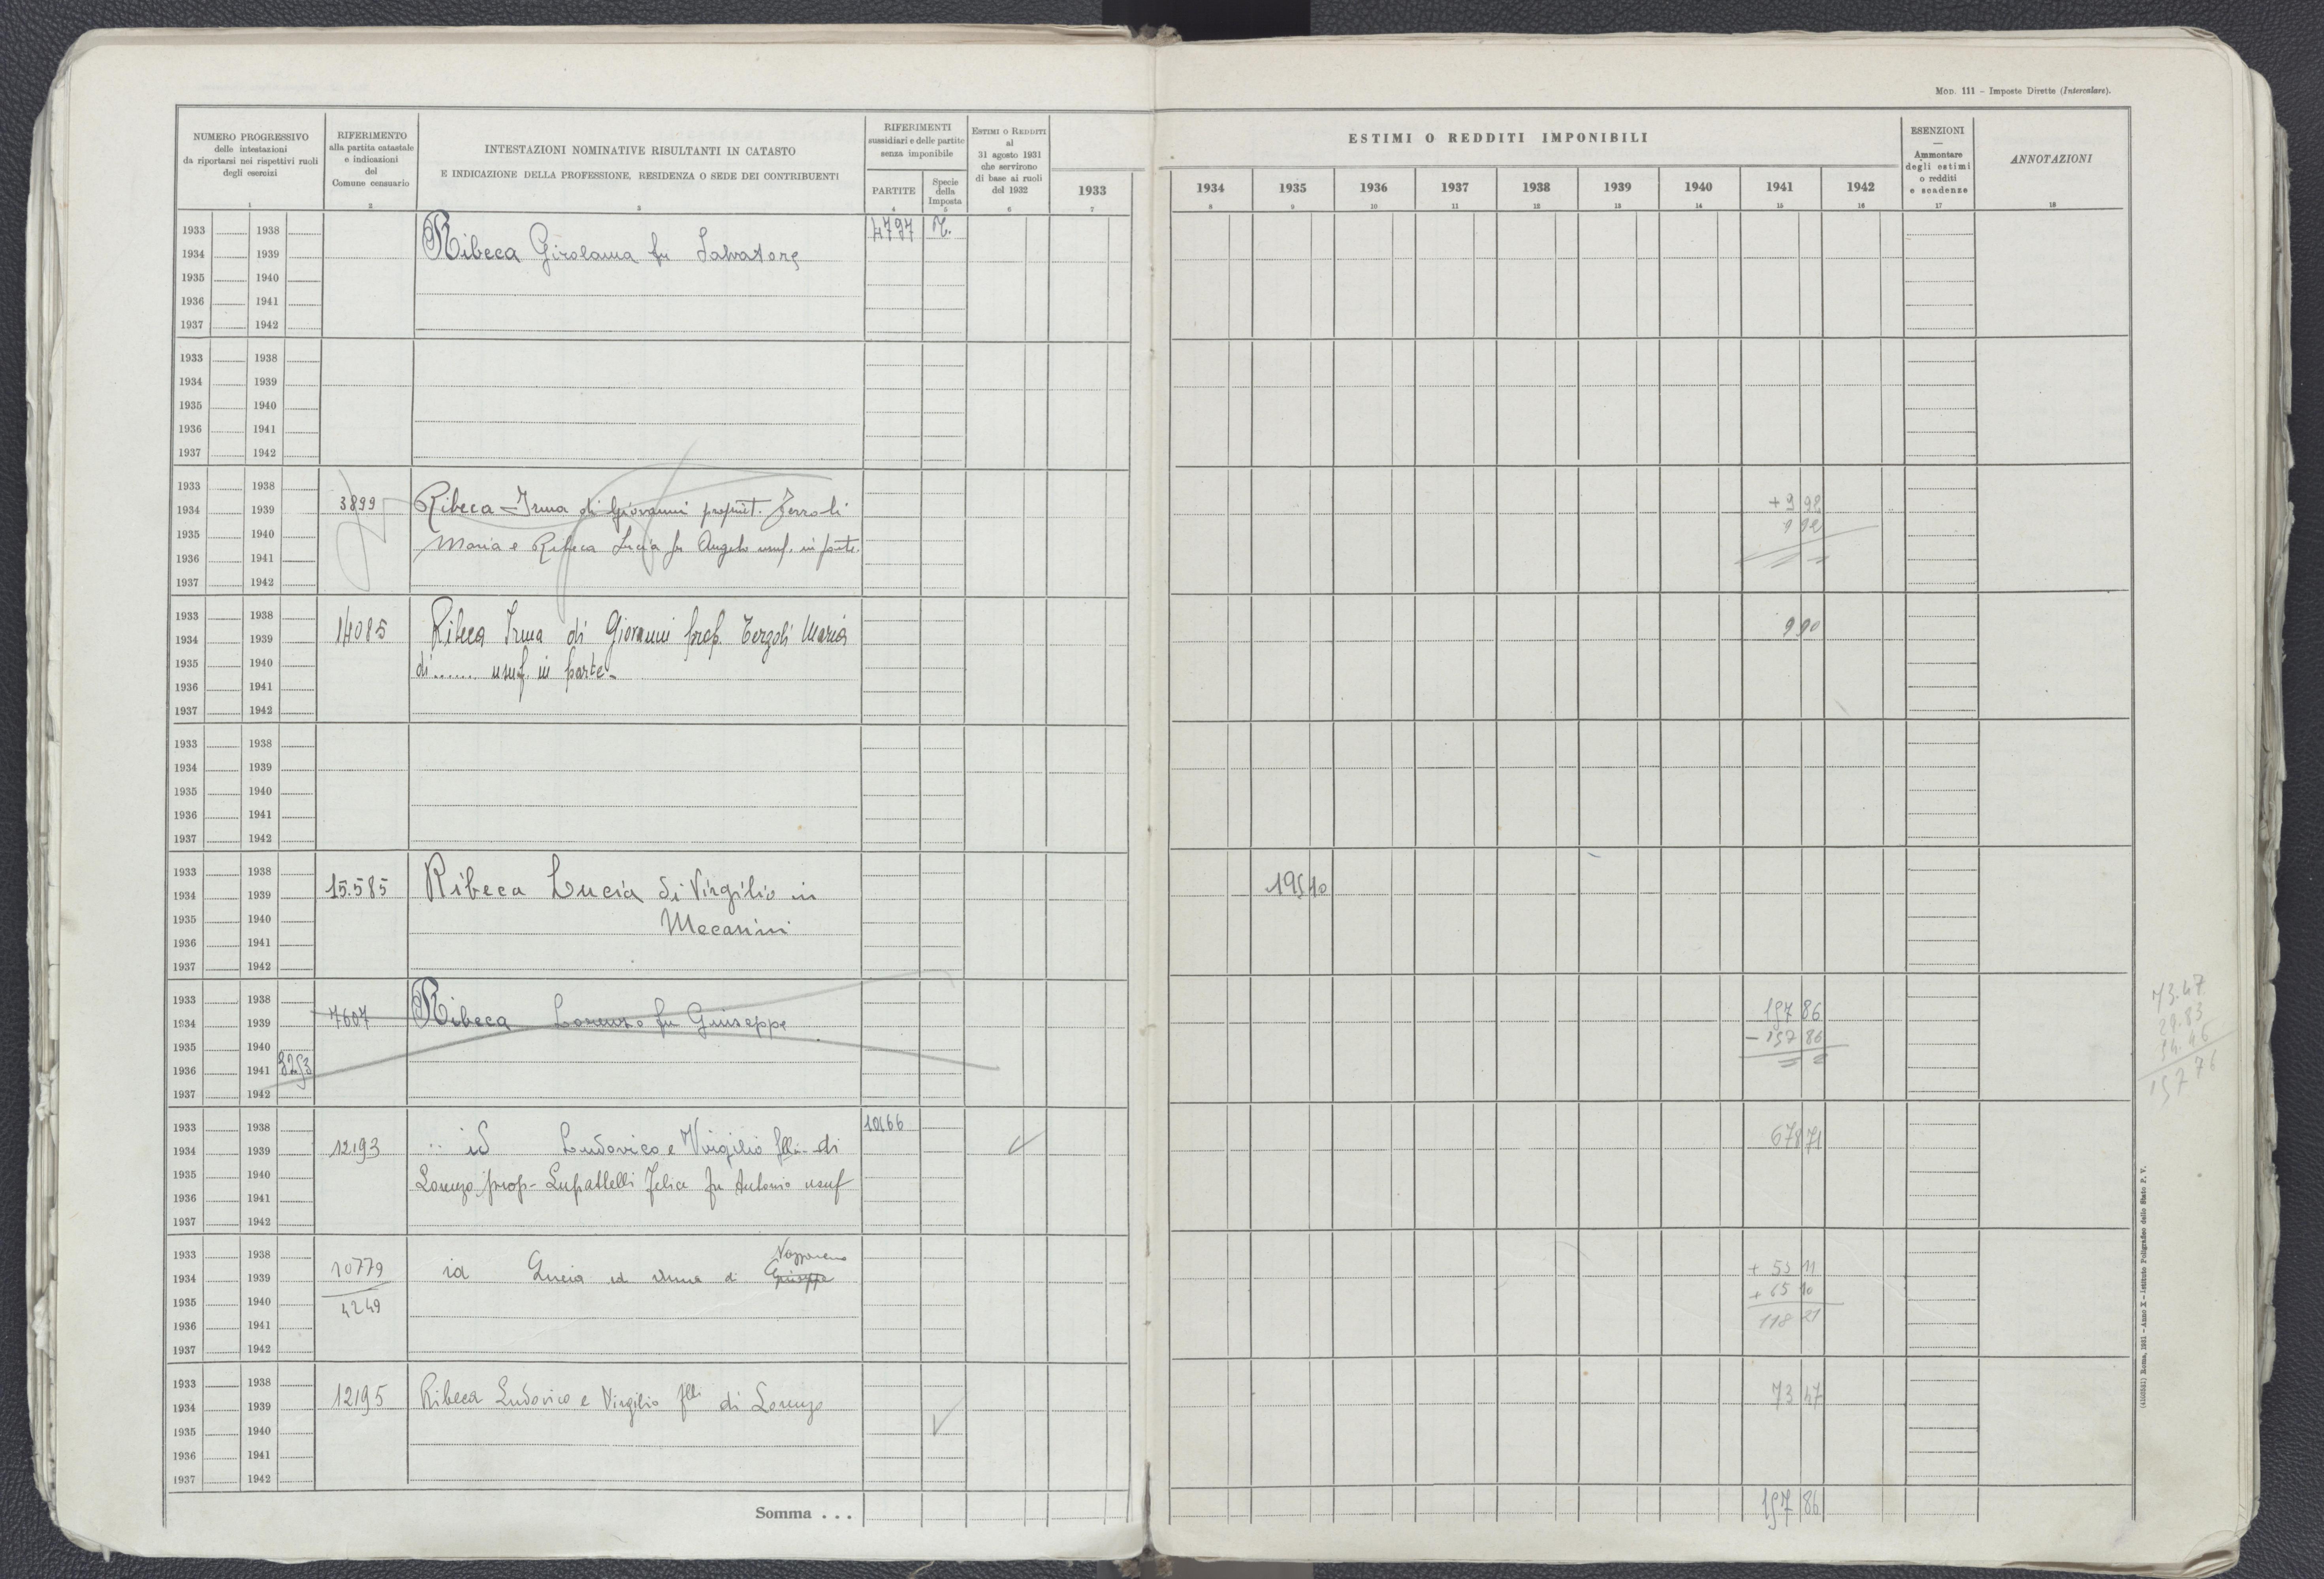 MOD. 111 – Imposte Dirette (Intercalare).
NUMERO PROGRESSIVO
delle intestazioni
da riportarsi nei rispettivi ruoli
degli esercizi
1
RIFERIMENTO
alla partita catastale
e indicazioni
del
Comune censuario
2
INTESTAZIONI NOMINATIVE RISULTANTI IN CATASTO
E INDICAZIONE DELLA PROFESSIONE, RESIDENZA O SEDE DEI CONTRIBUENTI
3
RIFERIMENTI
sussidiari e delle partite
senza imponibile
PARTITE
4
Specie
della
Imposta
5
ESTIMI O REDDITI
al
31 agosto 1931
che servirono
di base ai ruoli
del 1932
6
1933
7
ESTIMI O REDDITI IMPONIBILI
1934 1935 1936 1937 1938 1939 1940 1941 1942
8 9 10 11 12 13 14 15 16
ESENZIONI
—
Ammontare
degli estimi
o redditi
e scadenze
17
ANNOTAZIONI
18
1933 1938 4797 T.
1934 1939 Ribeca Girolama fu Salvatore
1935 1940
1936 1941
1937 1942
1933 1938
1934 1939
1935 1940
1936 1941
1937 1942
1933 1938
1934 1939 3899 Ribeca Irma di Giovanni propriet. Terzoli + 9 92
1935 1940 Maria e Ribeca Lucia fu Angelo usuf. in parte. 9 92
1936 1941
1937 1942
1933 1938
1934 1939 14085 Ribeca Irma di Giovanni prop. Terzoli Maria 9 90
1935 1940 di....... usuf. in parte.
1936 1941
1937 1942
1933 1938
1934 1939
1935 1940
1936 1941
1937 1942
1933 1938
1934 1939 15.585 Ribeca Lucia di Virgilio in 195 10
1935 1940 Mecanini
1936 1941
1937 1942
1933 1938 197 86
1934 1939 7607 Ribeca Lorenzo fu Giuseppe
1935 1940 – 197 86
1936 1941 8253
1937 1942
73.47
29.83
54.46
157 76
1933 1938 10166
1934 1939 12193 " id Ludovico e Virgilio flli di 678 71
1935 1940 Lorenzo prop- Lupattelli Felice fu Antonio usuf
1936 1941
1937 1942
1933 1938 Nazzareno
1934 1939 10779 id Lucia ed Irma di Giuseppe + 53 11
1935 1940 4249 + 65 10
1936 1941 118 21
1937 1942
1933 1938
1934 1939 12195 Ribeca Ludovico e Virgilio flli di Lorenzo 73 47
1935 1940
1936 1941
1937 1942
Somma . . . 197 86
(4103551) Roma, 1931 – Anno X – Istituto Poligrafico dello Stato P. V.